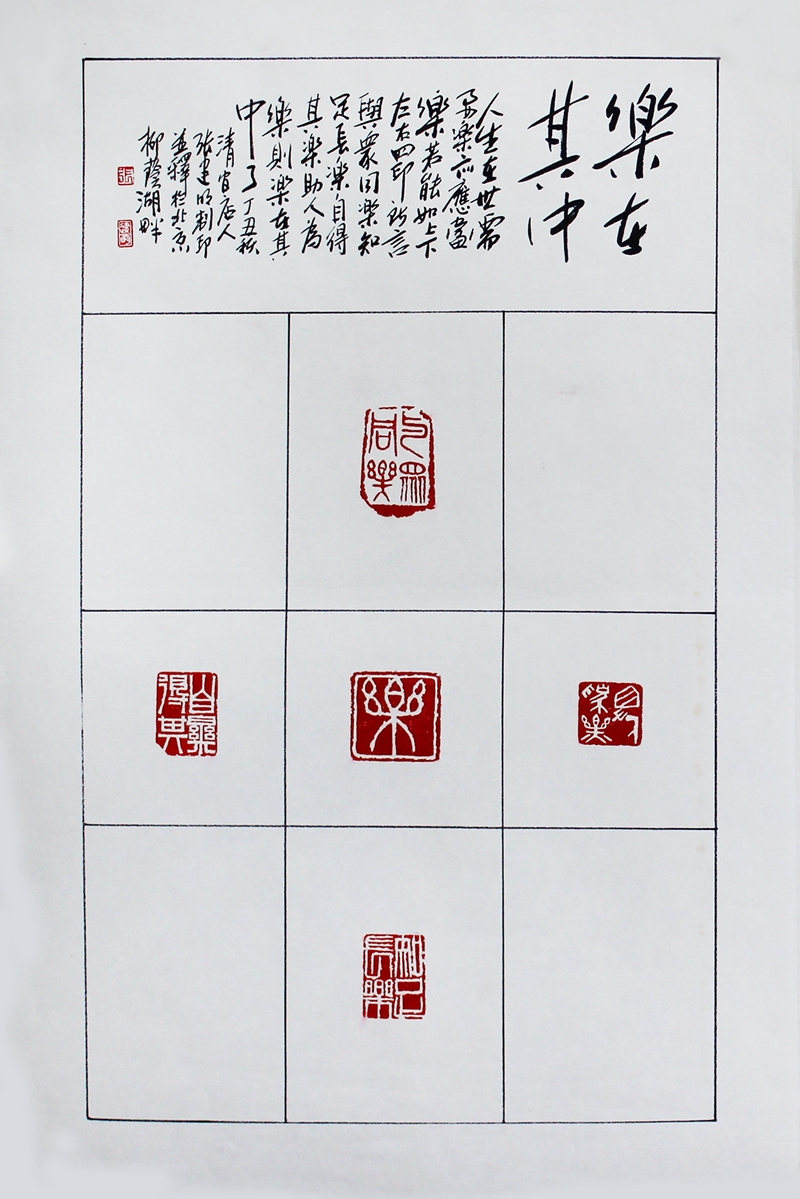 樂在
其中
人生在世需
要樂亦應當
樂若能如上下
左右四印所言
與眾同樂知
足長樂自得
其樂助人為
樂則樂在其
中了丁丑秋
清官店人
張建明制印
並釋於北京
柳蔭湖畔
与眾同樂
助人為樂
樂
自得其樂
知足長樂